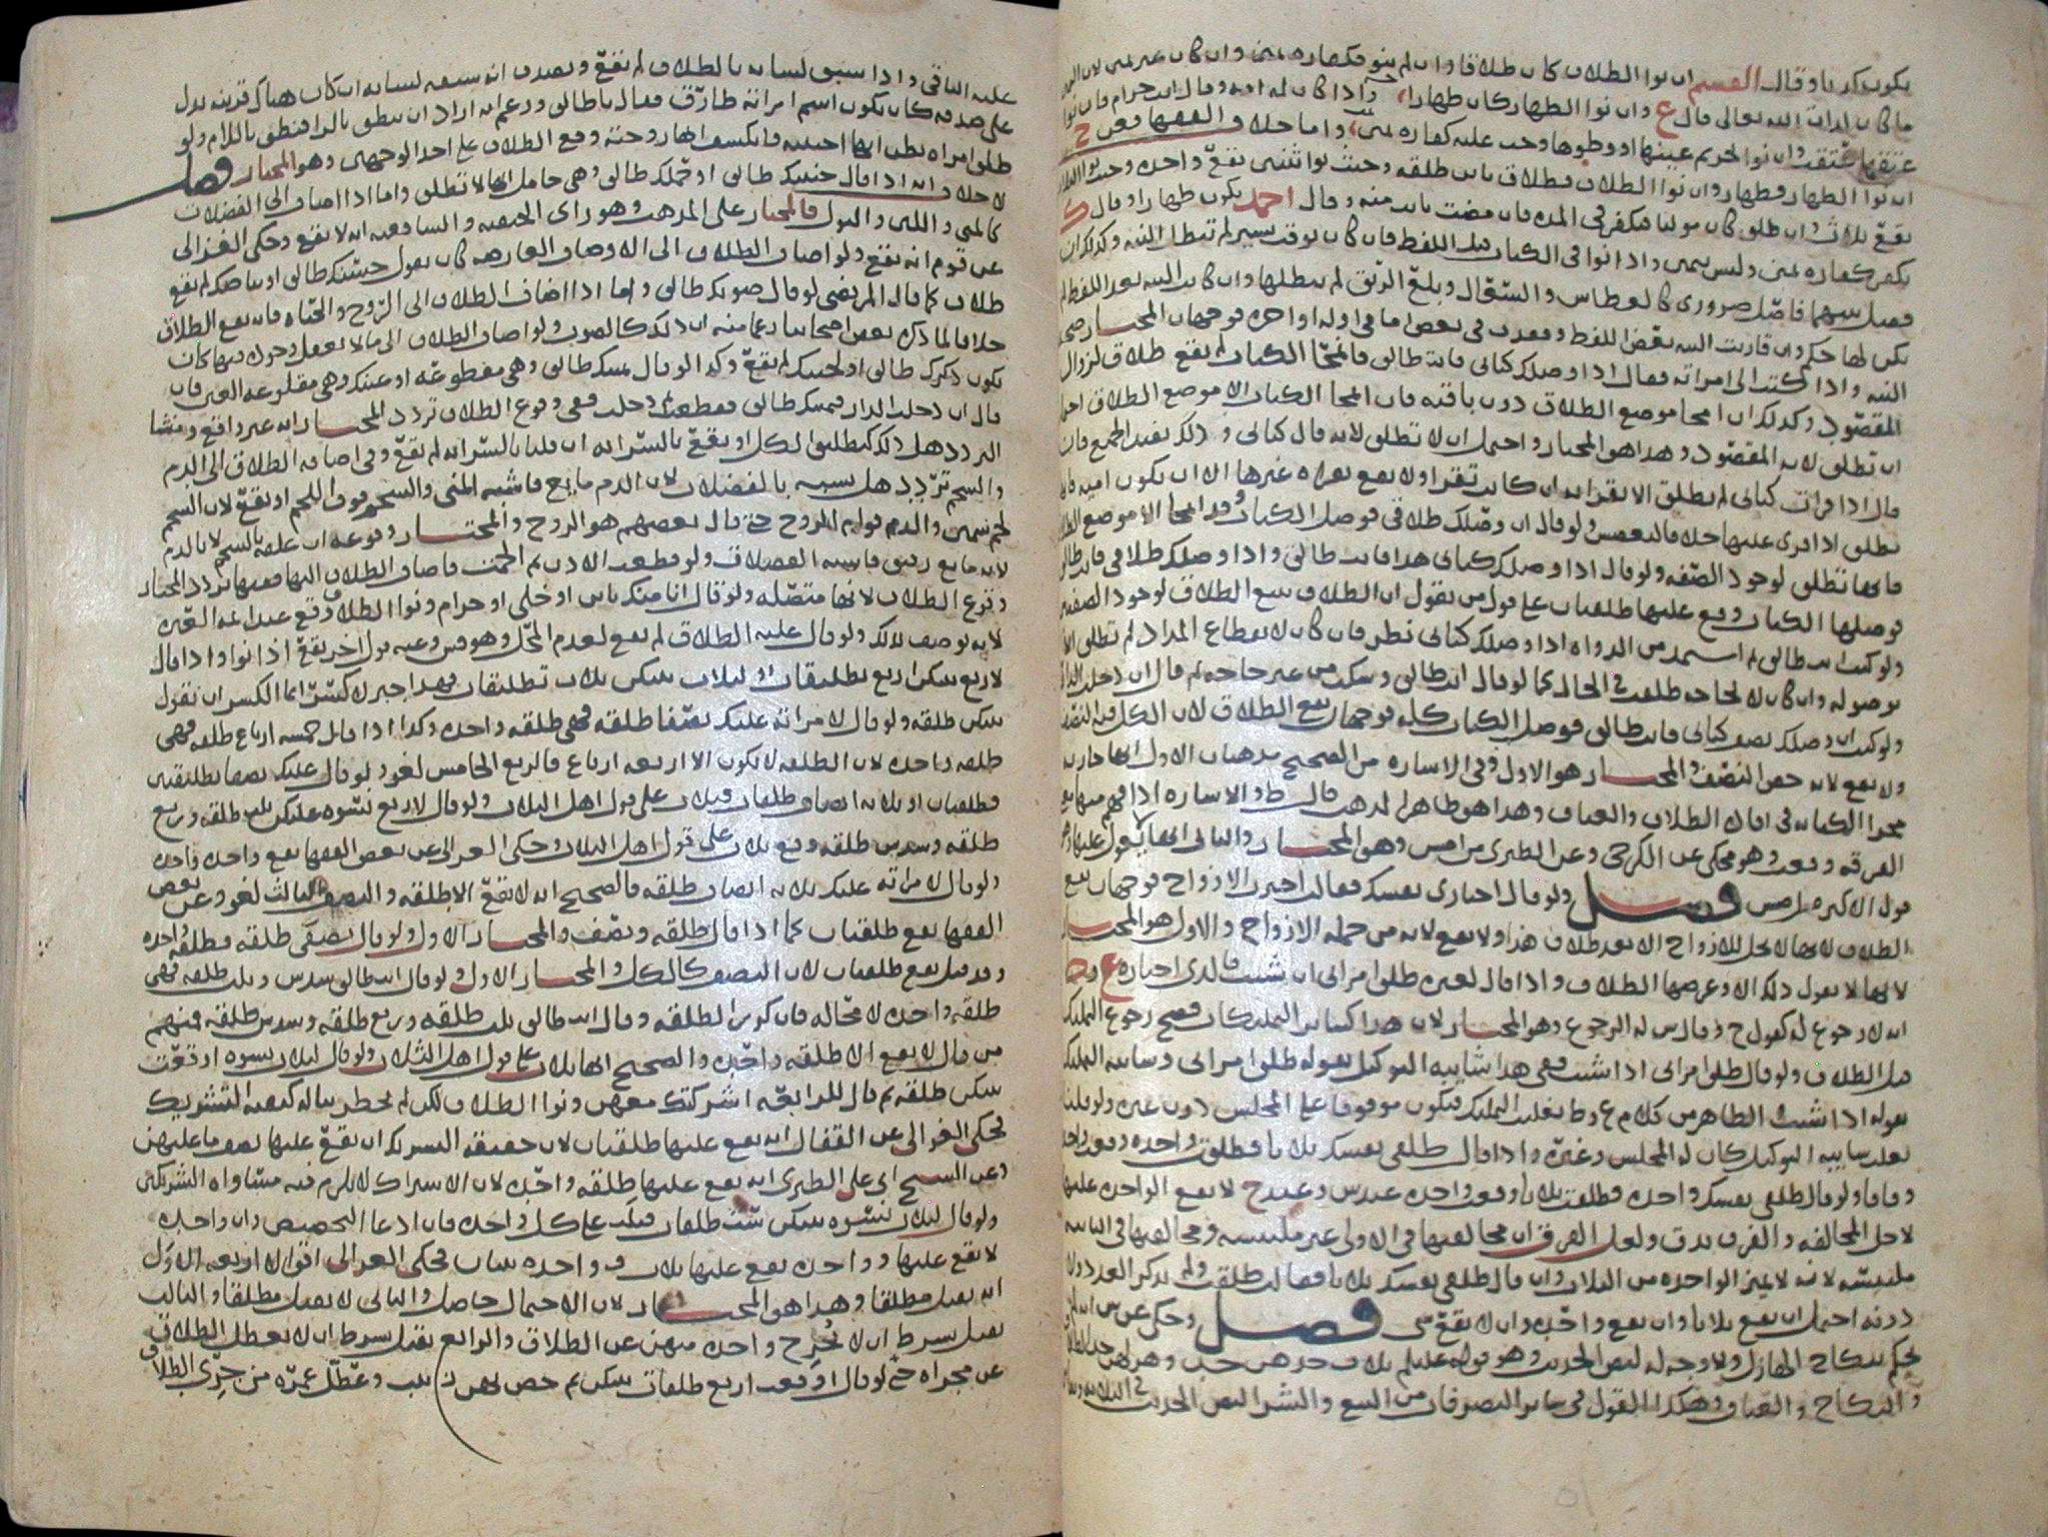 يكون يمينا وقال القسم ان نوا الطلاق كان طلاقا وان لم ينو فكفاره يمين وان كان غير
ما كان قال ع وان نوا الظهار كان ظهارا واذا كان له امه وقال انت حرام فان نوا
عتقها عتقت وان نوا تحريم عينها او وطيها وجب عليه كفاره يمين واما خلاف الفقها فعن ح
ان نوا الظهار فظهار وان نوا الطلاق فطلاق باين طلقه وحيث نوا ثنتين تقع واحده وحيث نوا
يقع ثلاث وان طلق كان موليا فيكفر في المده فان مضت بانت منه وقال احمد يكون ظهارا وقال ك
يكفر كفاره يمين وليس بيمين واذا نوا في الكتاب قبل اللفظ فان كان بوقت يسير لم تبطل النيه وكذلك ان
فصل بينهما فاصل ضروري كالعطاس والسعال وبلع الريق لم يبطلها وان كانت النيه بعد اللفظ لم
يكن لها حكم وان قارنت النيه بعض اللفظ وفقدت في بعض اما في اوله او اخره فوجهان المختار
النيه واذا كتب الى امراته فقال اذا وصلك كتابي فانت طالق فانمحا الكتاب لم يقع طلاق لزوال
المقصود وكذلك ان امحا موضع الطلاق دون باقيه فان امحا الكتاب الا موضع الطلاق
ان تطلق لانه المقصود وهذا هو المختار واحتمل ان لا تطلق لانه قال كتابي وذلك يفيد الجميع فان
قال اذا قرات كتابي لم يطلق الا بقرايه ان كانت تقرا ولا يقع بقراه غيرها الا ان يكون اميه
تطلق اذا قري عليها ولو قال ان وصلك طلاقي فوصل الكتاب وقد امحا الا موضع
فانها تطلق لوجود الصفه ولو قال اذا وصلك كتابي هذا فانت طالق واذا وصلك طلاقي فانت طالق
فوصلها الكتاب وقع عليها طلقتان على قول من يقول ان الطلاق يتبع الطلاق لوجود
ولو كتب انت طالق ثم استمد من الدواه اذا وصلك كتابي نظر فان كان لانقطاع المداد لم تطلق الا
بوصوله وان كان لا لحاجه طلقت في الحال كما لو قال انت طالق وسكت من غير حاجه ثم قال ان دخلت
ولو كتب ان وصلك نصف كتابي فانت طالق فوصل الكتاب كله فوجهان يقع الطلاق لان الكل فيه
ولا يقع لانه خص النصف والمختار هو الاول وفي الاشاره من الصحيح مذهبان الاول انها جاريه
مجرا الكنايه في اقاع الطلاق والعتاق وهذا هو ظاهر المذهب قال ط والاشاره اذا فهم
الفرقه وقعت وهو محكي عن الكرخي وعن الطبري من امس وهو المختار والثاني انها لا يعول عليها
قول الاكثر من امس فصل ولو قال اختاري نفسك فقالت اخترت الازواج فوجهان يقع
الطلاق لانها لا تحل للازواج الا بعد طلاق هذا ولا يقع لانه من جمله الازواج والاول هو المختار
لانها لا تقول ذلك الا وغرضها الطلاق واذا قال لغيره طلق امراتي ان شيت فالذي اختاره ع
انه لا رجوع له كقول ح وقال س له الرجوع وهو المختار لان هذا كساير التمليكات فصح رجوع
قبل الطلاق ولو قال طلق امراتي اذا شيت ففي هذا شايبه التوكيل بقوله طلق امراتي وشايبه التمليك
بقوله اذا شيت والظاهر من كلام ع وط تغليب التمليك فيكون موقوفا على المجلس دون غيره ولو قلنا
تغليب شايبه التوكيل كان له المجلس وغيره واذا قال طلقي نفسك ثلاثا فطلقت واحده وقعت
وفاقا ولو قال طلقي نفسك واحده فطلقت ثلاثا وقع واحده عند س وعند ح لا يقع الواحده عليها
لاجل المخالفه والفرق يدق ولعل الفرق ان مخالفتها في الاولى غير ملتبسه ومخالفتها في الثانيه
ملتبسه لانه لا يميز الواحده من الثلاث وان قال طلقي نفسك ثلاثا فقالت طلقت ولم تذكر العدد
ونيه احتمل ان يقع ثلاثا وان يقع واحده وان لا يقع شي فصل وحكي عن س انه
يحكم بنكاح الهازل ولا وجه له لنص الحديث وهو قوله عليلم ثلاث جدهن جد وهزلهن جد
والنكاح والعتاق وهكذا القول في ساير التصرفات من البيع والشرا لنص الحديث في الثلاثه
عليه الباقي واذا سبق لسانه بالطلاق لم يقع ويصدق انه سبقه لسانه ان كان هناك قرينه تدل
على صدقه كان يكون اسم امراته طارق فقال يا طالق وزعم انه اراد ان ينطق بالرا فنطق باللام ولو
طلق امراه يظن انها اجنبيه فانكشف انها زوجته وقع الطلاق على احد الوجهين وهو المختار فصل
لا خلاف انه اذا قال جنينك طالق او حملك طالق وهي حامل انها لا تطلق واما اذا اضاف الى الفضلات
كالمني واللبن والبول فالمختار على المذهب وهو راي الحنفيه والشافعيه انه لا يقع وحكى الغزالي
عن قوم انه يقع ولو اضاف الطلاق الى الاوصاف العارضه كان يقول حسنك طالق او بياضك لم يقع
طلاق كما قال المرتضى لو قال صوتك طالق واما اذا اضاف الطلاق الى الروح والحياه فانه يقع الطلاق
خلافا لما ذكره بعض اصحابنا زعما منه ان ذلك كالصوت ولو اضاف الطلاق الى ما لا يعقل وجوده فيها كان
يكون ذكرك طالق او لحيتك لم يقع وكذا لو قال يمينك طالق وهي مقطوعه او عينك وهي مقلوعه العين فان
قال ان دخلت الدار فيمينك طالق فقطعت ثم دخلت ففي وقوع الطلاق تردد المختار انه غير واقع ومنشا
التردد هل ذلك كتطليق الكل او يقع بالسرايه ان قلنا بالسرايه لم يقع وفي اضافه الطلاق الى الدم
والشحم تردد هل يشبه بالفضلات لان الدم مايع فاشبه المني والشحم فوق اللحم او يقع لان الشحم
لحم سمين والدم قوام الروح حتى قال بعضهم هو الروح والمختار وقوعه ان علقه بالشحم لا بالدم
لانه مايع رقيق فاشبه الفضلات ولو قطعت الاذن ثم التحمت فاضاف الطلاق اليها ففيها تردد المختار
وقوع الطلاق لانها متصله ولو قال انا منك باين او خلي او حرام ونوا الطلاق وقع عند ايمه العتره
لانه يوصف بذلك ولو قال عليه الطلاق لم يقع لعدم المحل وهو قول س وعنه قول اخر يقع اذا نوا واذا قال
لاربع بينكن اربع تطليقات او لثلاث بينكن ثلاث تطليقات فهذا جبر لا كسر انما الكسر ان يقول
بينكن طلقه ولو قال لامراته عليك نصفا طلقه فهي طلقه واحده وكذا اذا قال خمسه ارباع طلقه فهي
طلقه واحده لان الطلقه لا يكون الا اربعه ارباع فالربع الخامس لغو ولو قال عليك نصفا تطليقتين
فطلقتان او ثلاثه انصاف طلقات فثلاث على قول اهل الثلاث ولو قال لاربع نسوه عليكن ثلث طلقه وربع
طلقه وسدس طلقه وقع ثلاث على قول اهل الثلاث وحكى الغزالي عن بعض الفقها يقع واحده واحده
ولو قال لامراته عليك ثلاثه انصاف طلقه فالصحيح انه لا يقع الا طلقه والنصف الثالث لغو وعن بعض
الفقها يقع طلقتان كما اذا قال طلقه ونصف والمختار الاول ولو قال نصفي طلقه فطلقه واحده
وقد قيل يقع طلقتان لان النصف كالكل والمختار الاول ولو قال انت طالق سدس وثلث طلقه فهي
طلقه واحده لا محاله فان كرر الطلقه وقال انت طالق ثلث طلقه وربع طلقه وسدس طلقه فمنهم
من قال لا يقع الا طلقه واحده والصحيح انها ثلاث على قول اهل الثلاث ولو قال لثلاث نسوه اوقعت
بينكن طلقه ثم قال للرابعه اشركتك معهن ونوا الطلاق لكن لم يخطر بباله كيفيه التشريك
فحكى الغزالي عن القفال انه يقع عليها طلقتان لان حقيقه التشريك ان يقع عليها نصف ما عليهن
وعن الشيخ ابي علي الطبري انه يقع عليها طلقه واحده لان الاشراك لا يلزم فيه مساواه الشريكين
ولو قال لثلاث نسوه بينكن ست طلقات فيلب على كل واحده فان ادعا التخصيص وان واحده
لا يقع عليها وواحده يقع عليها ثلاث وواحده ثنتان فحكى الغزالي اقوالا اربعه الاول
انه يقبل مطلقا وهذا هو المختار لان الاحتمال حاصل والثاني لا يقبل مطلقا والثالث
يقبل بشرط ان لا تخرج واحده منهن عن الطلاق والرابع يقبل بشرط ان لا يعطل الطلاق
عن مجراه حتى لو قال اوقعت اربع طلقات بينكن ثم خص بهن زينب وعطل عمره من جزي الطلاق